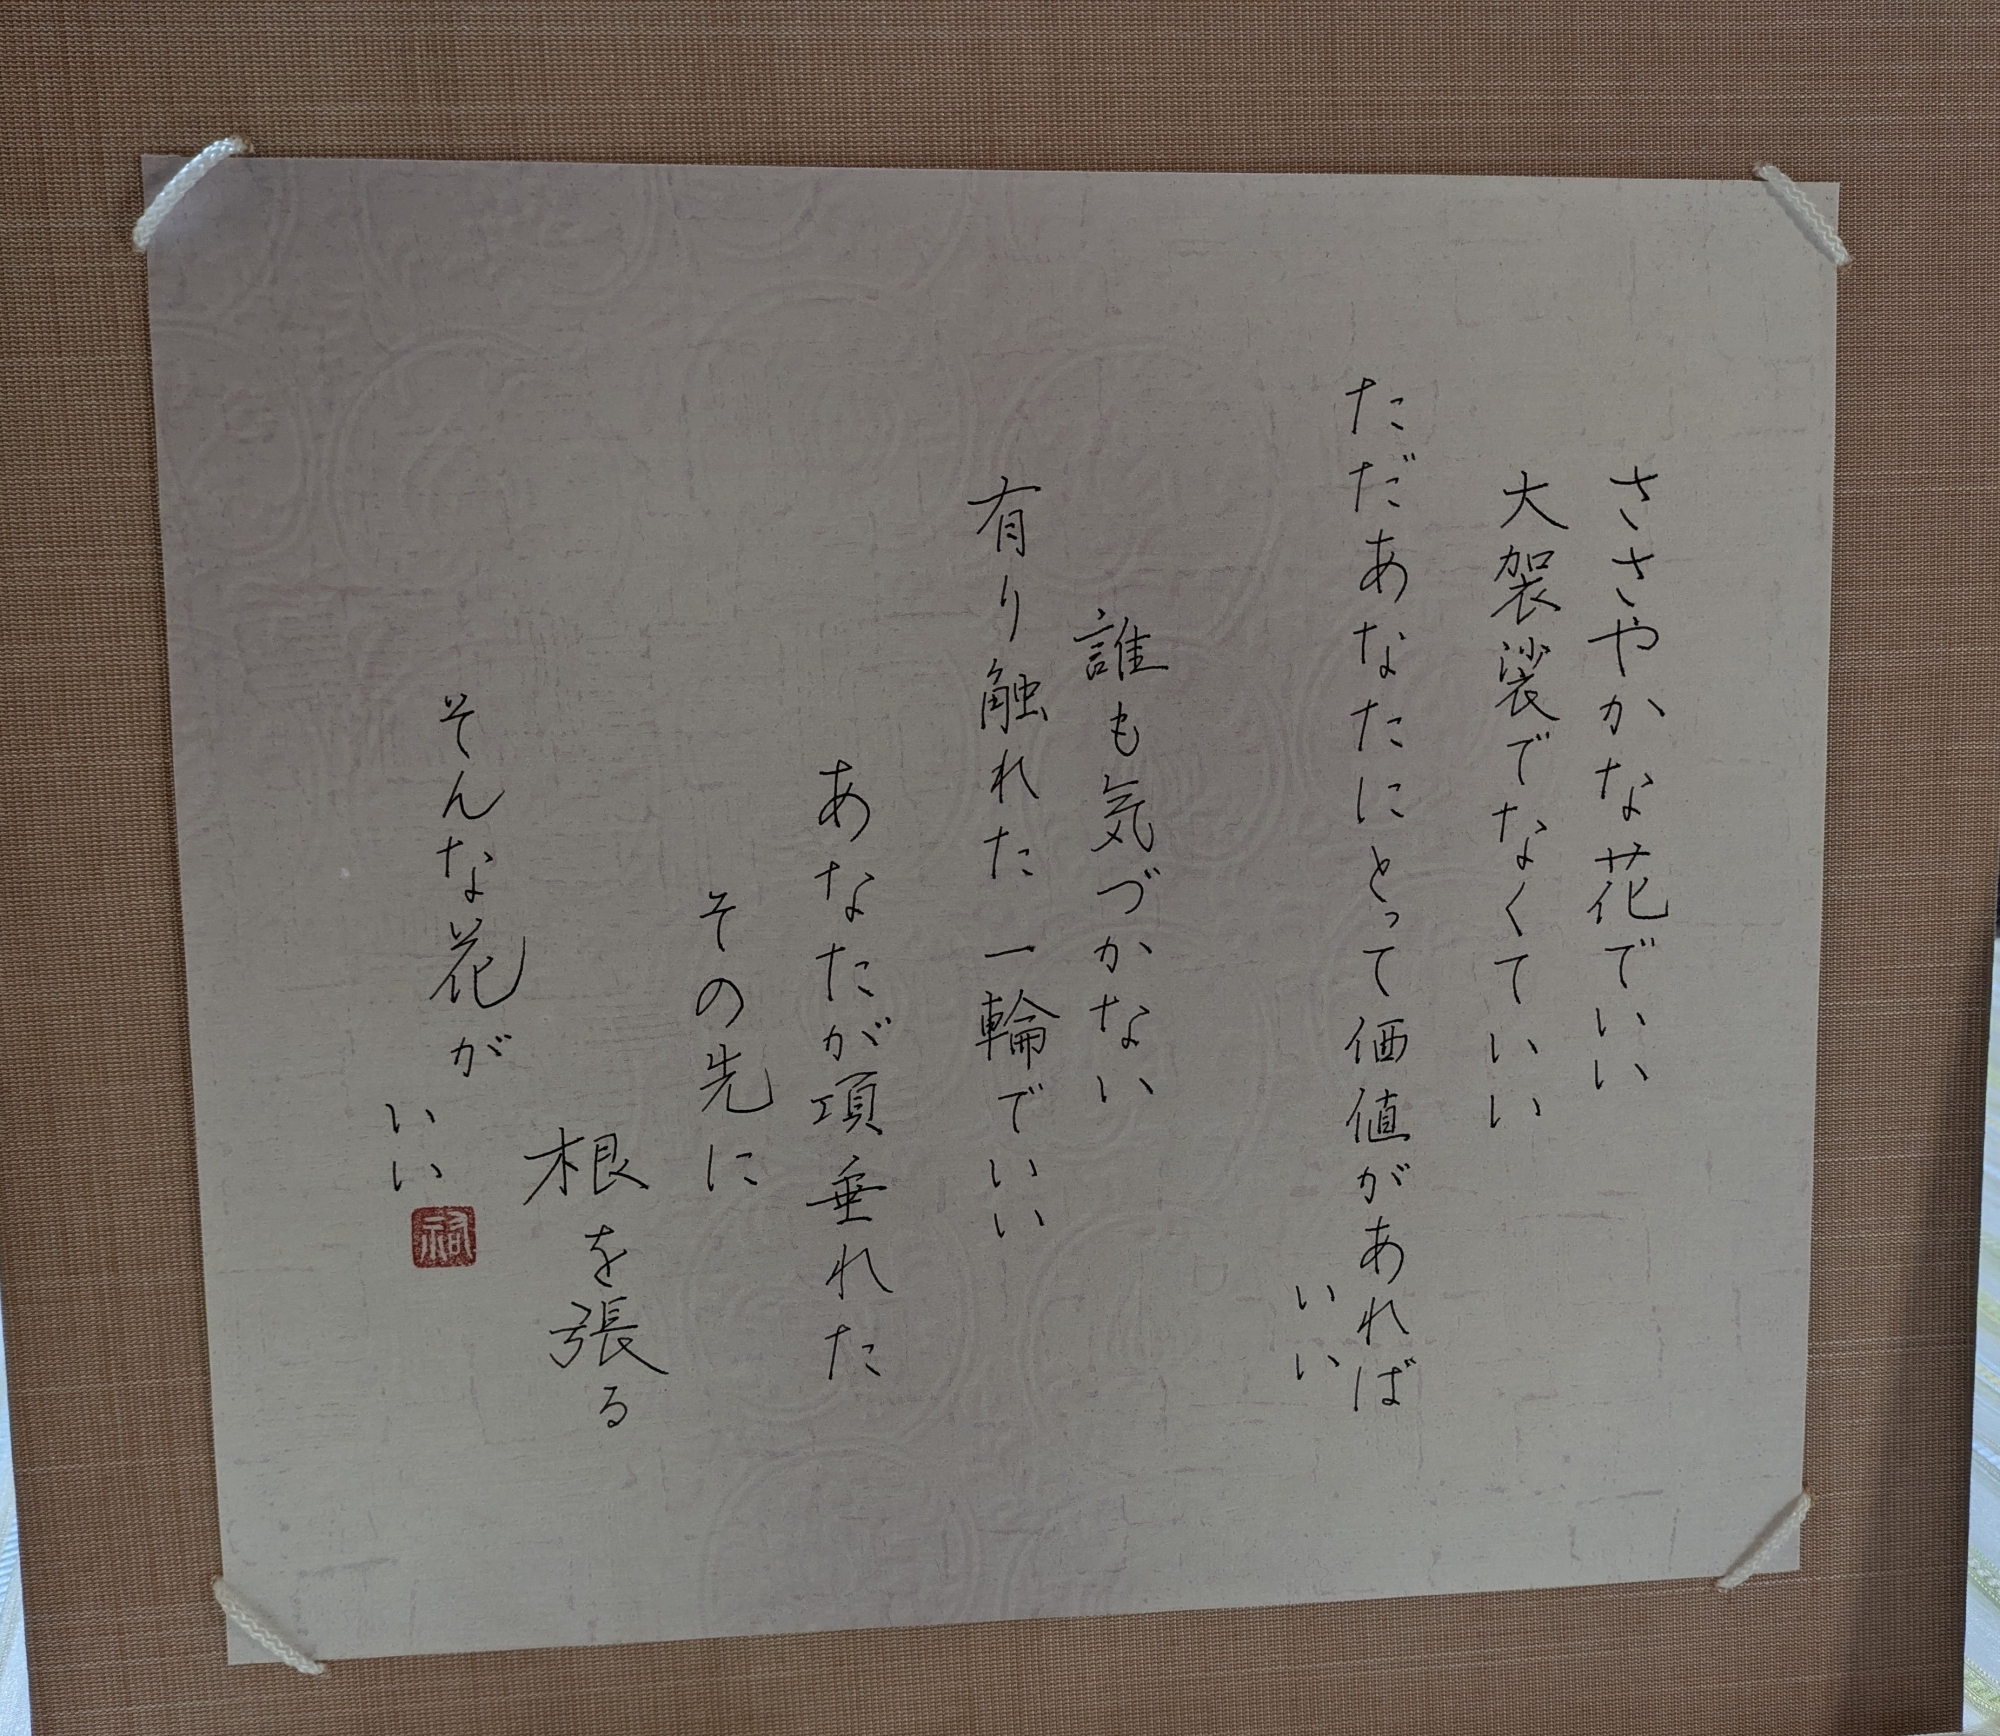 ささやかな花でいい
大袈裟でなくていい
ただあなたにとって価値があれば
いい
誰も気づかない
有り触れた一輪でいい
あなたが項垂れた
その先に
根を張る
そんな花が
いい